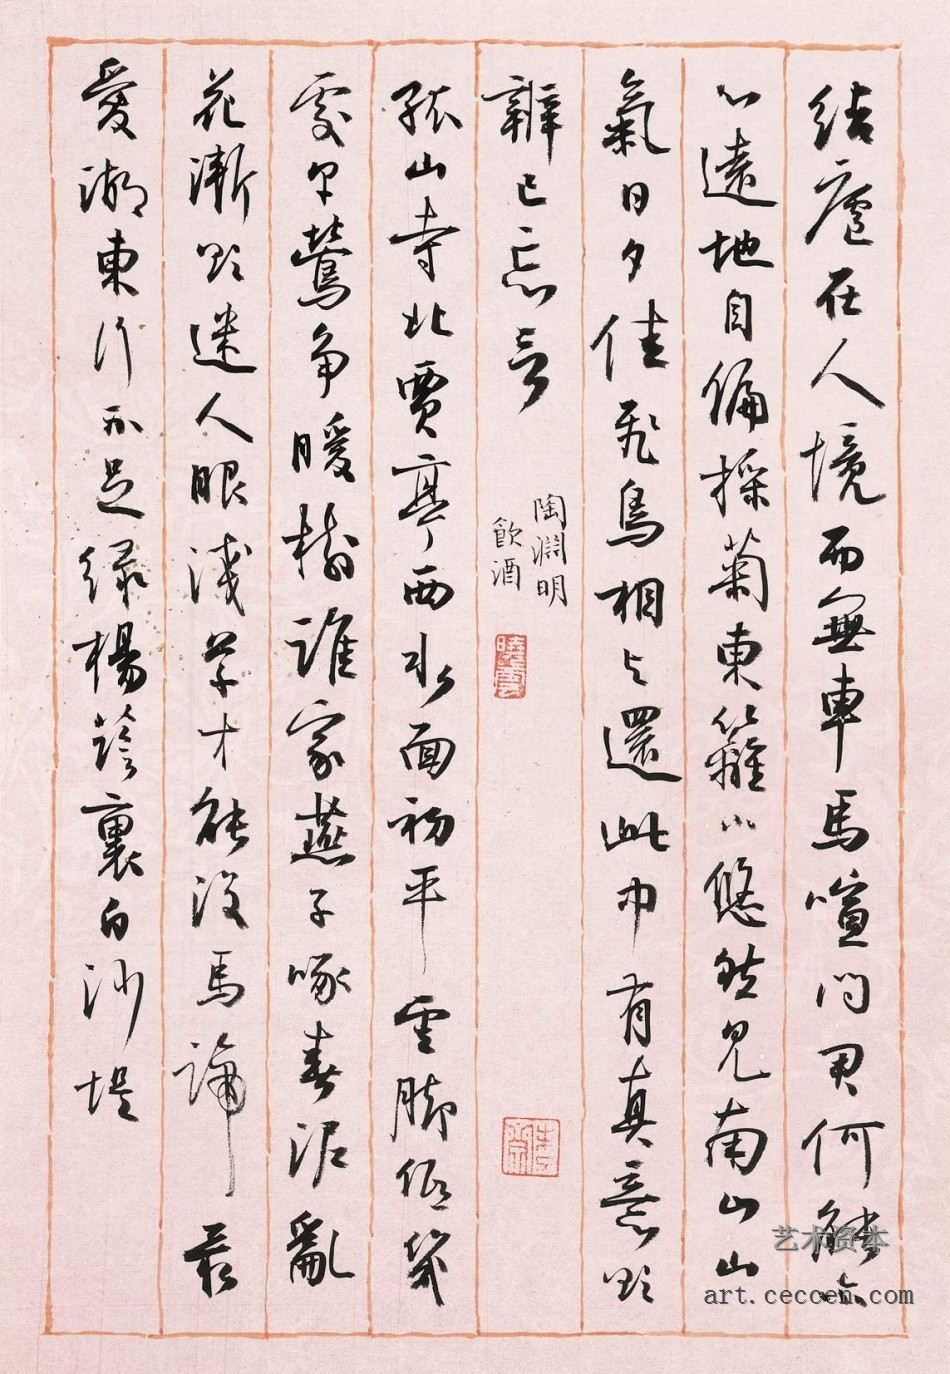 結廬在人境而無車馬喧問君何能尔
心遠地自偏採菊東籬下悠然見南山山
氣日夕佳飛鳥相与還此中有真意欲
辨已忘言
陶淵明
飲酒
孤山寺北賈亭西水面初平雲脚低幾
處早鶯争暖樹誰家燕子啄春泥亂
花漸欲迷人眼淺草才能没馬蹄最
愛湖東行不足緑楊蔭裏白沙堤
艺术资本
art.ceccen.com